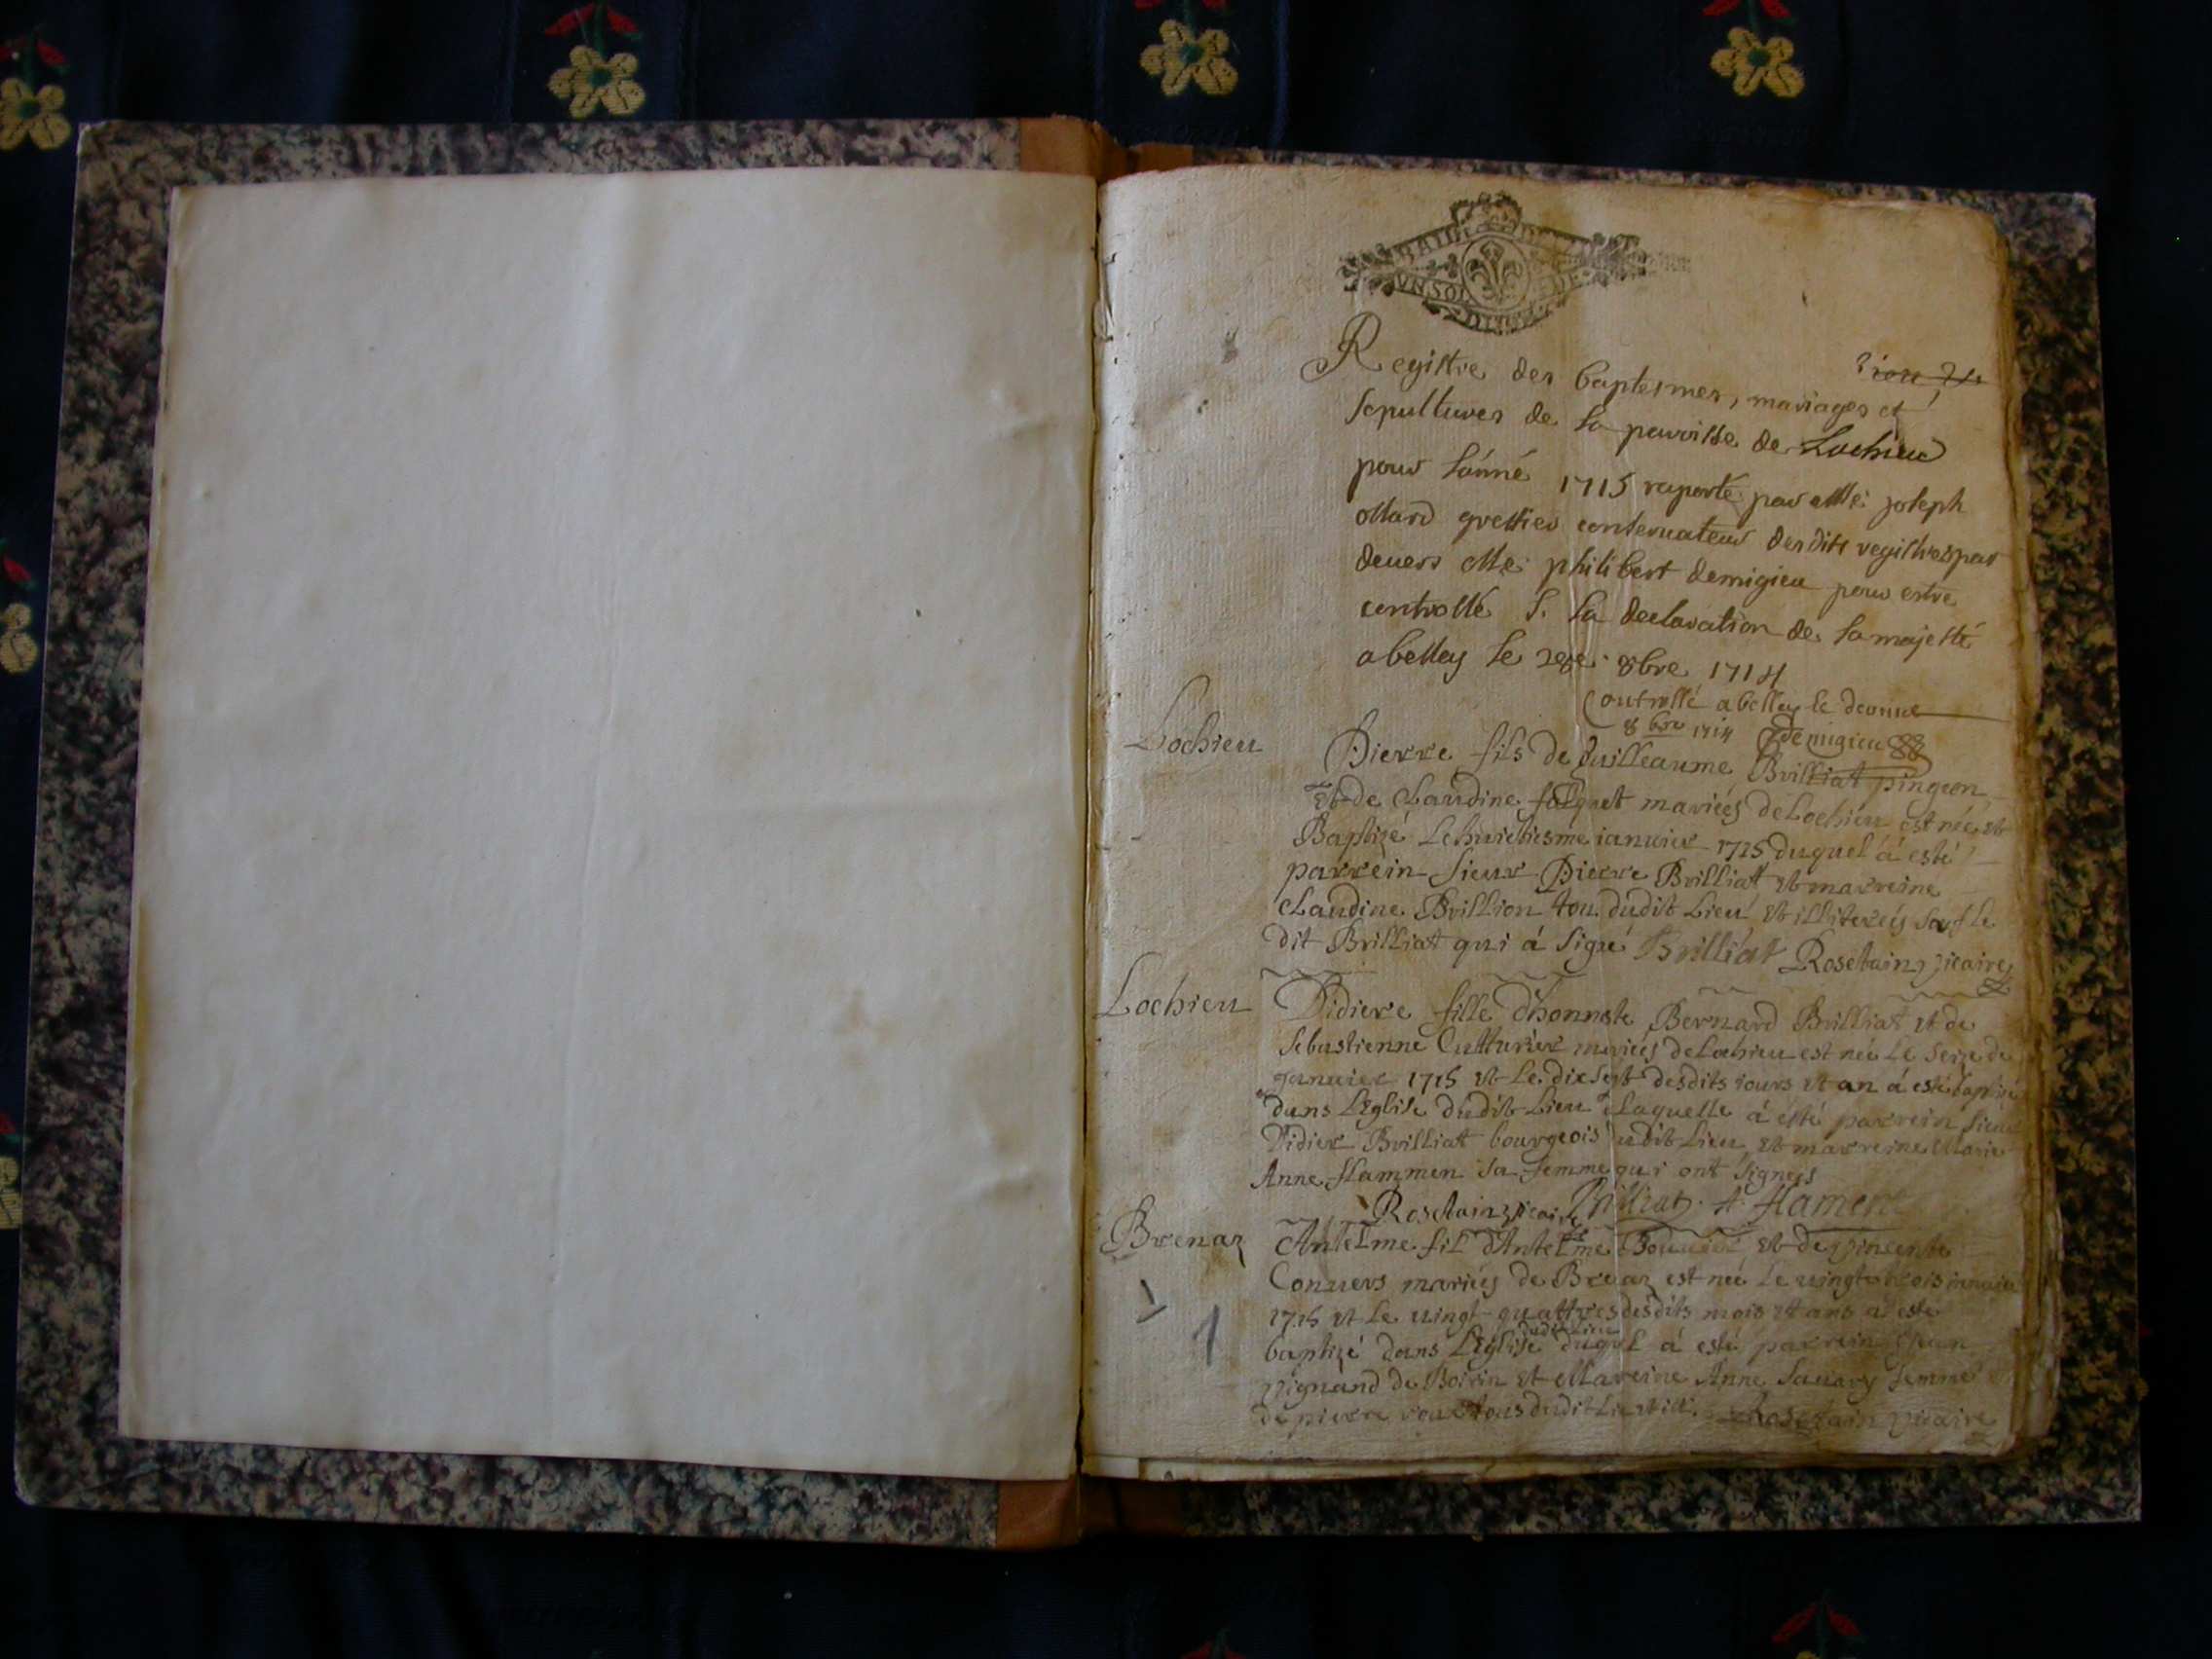 UN SOL
Registre des baptesmes, mariages et
sepultures de la parroisse de Lochieu
pour lánné 1715 raporté par Me joseph
ollard greffier conservateur desdits registres par
devers Me philibert demigieu pour estre
controllé S. la declaration de sa majesté
a belley le 8bre 1714
Controllé a belley le
8 bre 1714 demigieu
Lochieu
Pierre fils de Guilleaume Brilliat pingeon
Et de Claudine mariées de Lochieu est née et
Baptizé Le huictiesme ianvier 1715 duquel á esté
parrein Sieur Pierre Brilliat et marreine
Claudine Brillion tou dudit Lieu et illiterés sauf le
dit Brilliat qui á signé Brilliat Rosetain vicaire
Lochieu
Didiere fille d'honneste Bernard Brilliat et de
Sebastienne Cutturier mariées de Lochieu est née Le seize de
janvier 1715 et Le dix sept desdits iours et an á esté baptizé
dans L'Eglise dudit Lieu Laquelle á esté parrein sieur
Didier Brilliat bourgeois dudit Lieu et marreine Marie
Anne flammen sa femme qui ont signés
Rosetain vicaire Brilliat A flamen
Brenaz
Antelme fil d'Antelme et de vincente
Convers mariés de Brenaz est née Le vingt trois ianvier
1715 et Le vingt quattres desdits mois et ans á esté
dudit Lieu
baptizé dans L'Eglise duquel á esté parrein
vignand de et Mareine Anne Savary femme
de pierre tous dudit Lieu Rosetain vicaire
1